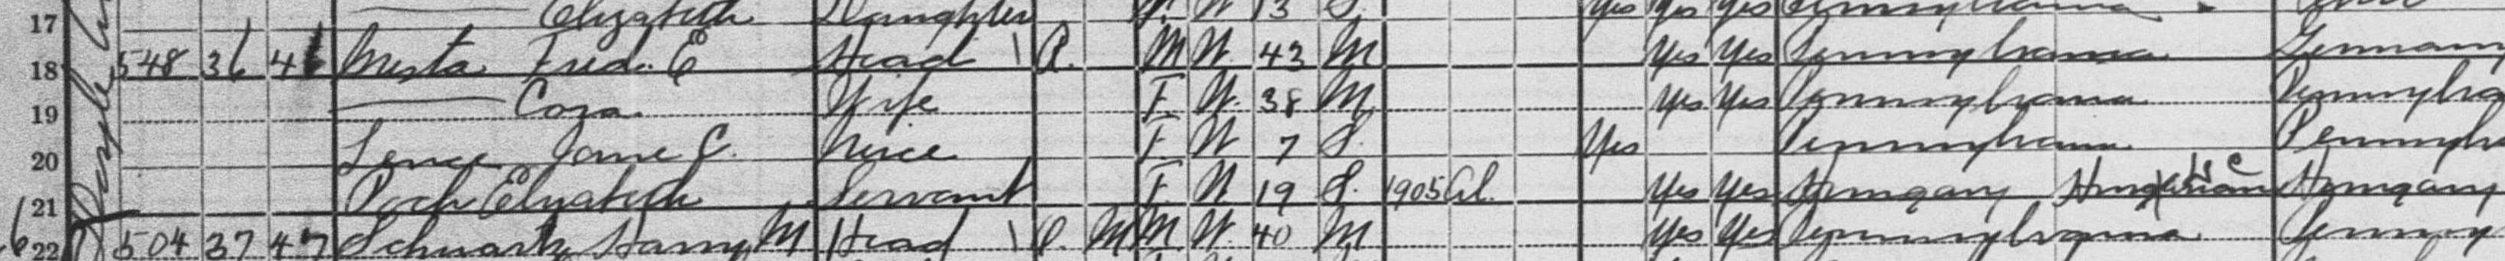 17 Elizabeth Daughter F. W 13 S. Yes Yes Yes Pennsylvania
18 548 36 Mesta Fred. E Head 1 R. M W. 43 M Yes Yes Pennsylvania Germany
19 Cora Wife F. W. 38 M Yes Yes Pennsylvania Pennsylva
20 Jane C. Niece F W 7 S. Yes Pennsylvania Pennsylv
21 Elizabeth Servant F. W 19 S. 1905 Al. Yes Yes Hungary Hungarian Hungary
22 504 37 47 Schwartz Harry M Head 1 O. M M W. 40 M Yes Yes Pennsylvania